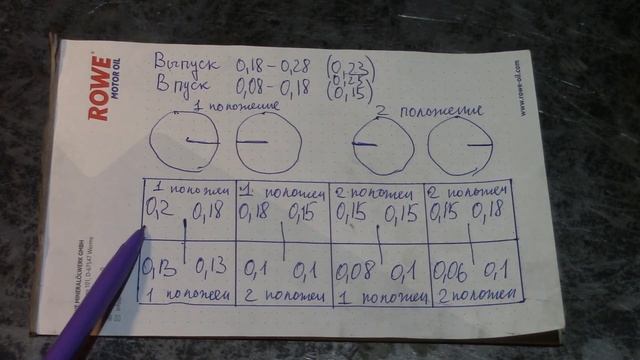 Выпуск 0,18 – 0,28 (0,23)
0,25
Впуск 0,08 – 0,18 (0,15)
1 положение 2 положение
1 положен 1 положен 2 положен 2 положен
0,2 0,18 0,18 0,15 0,15 0,15 0,15 0,18
0,13 0,13 0,1 0,1 0,08 0,1 0,06 0,1
1 положен 2 положен 1 положен 2 положен
ROWE
MOTOR OIL
www.rowe-oil.com